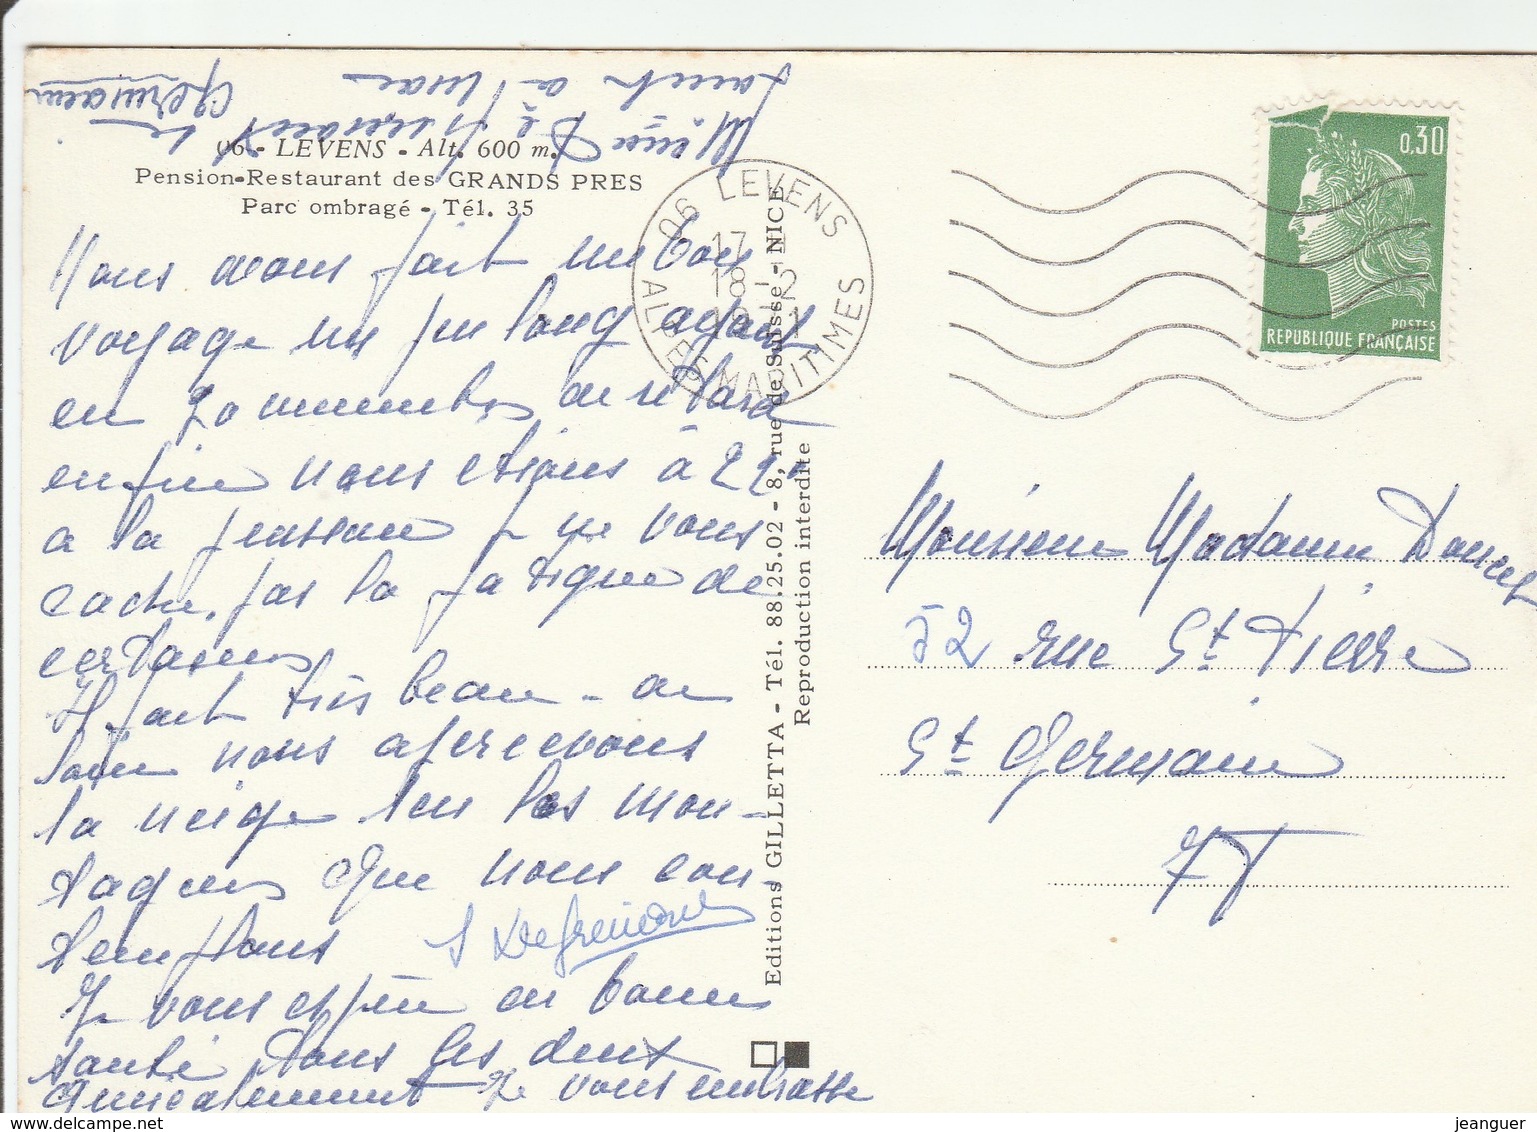 06 - LEVENS - Alt. 600 m.
Pension-Restaurant des GRANDS PRES
Parc ombragé - Tél. 35
Nous avons fait un bon
voyage un peu long ayant
eu 20 minutes de retard
enfin nous étions à 22h
a la pension je ne vous
cache pas la fatigue de
certaines
Il fait très beau - au
loin nous apercevons
la neige sur les mon-
tagnes que nous con
templons
Je vous espère en bonne
santé tous les deux
amicalement Je vous embrasse
Germain
06 LEVENS
17 H
18 - 2
ALPES MARITIMES
Editions GILLETTA - Tél. 88.25.02 - 8, rue de Suisse - NICE
Reproduction interdite
0,30
POSTES
REPUBLIQUE FRANÇAISE
Monsieur Madame Doucet
52 rue St Pierre
St Germain
78
jeanguer